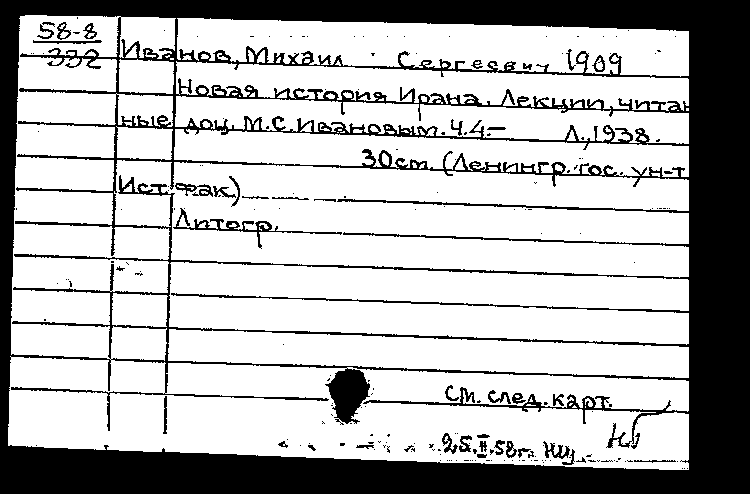 58-8
332
Иванов, Михаил Сергеевич 1909
Новая история Ирана. Лекции, читан
ные доц. М.С.Ивановым. Ч.4.— Л., 1938.
30см. (Ленингр. гос. ун-т.
Ист. фак.)
Литогр.
См. след. карт.
25.II.58г.